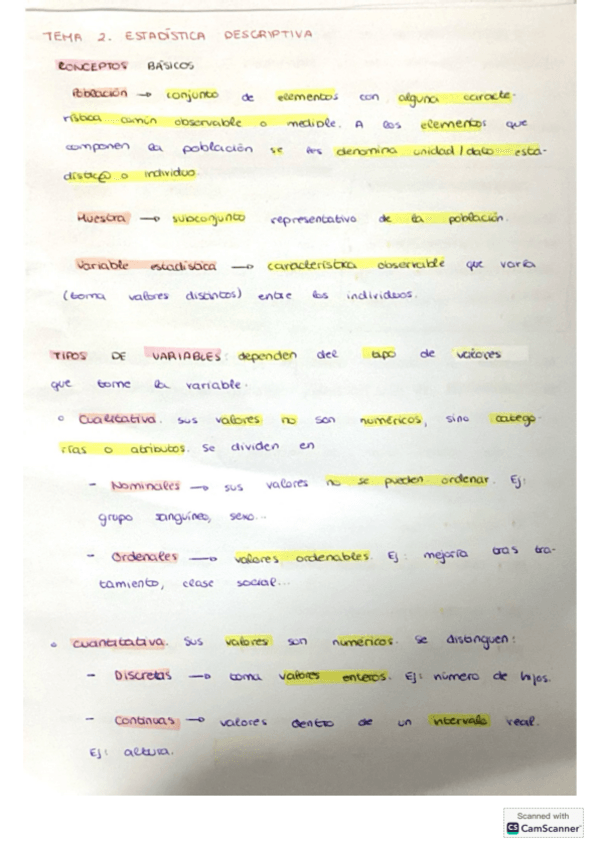 TEMA 2. ESTADÍSTICA DESCRIPTIVA
CONCEPTOS BÁSICOS
Población → conjunto de elementos con alguna caracte-
rística común observable o medible. A los elementos que
componen la población se les denomina unidad/dato esta-
dístic@ o individuo.
Muestra → subconjunto representativo de la población.
Variable estadística → característica observable que varía
(toma valores distintos) entre los individuos.
TIPOS DE VARIABLES: dependen del tipo de valores
que tome la variable.
Cualitativa. Sus valores no son numéricos, sino catego-
rías o atributos. Se dividen en
- Nominales → sus valores no se pueden ordenar. Ej:
grupo sanguíneo, sexo...
- Ordenales → valores ordenables. Ej: mejoría tras tra-
tamiento, clase social...
Cuantitativa. Sus valores son numéricos. Se distinguen:
- Discretas → toma valores enteros. Ej: número de hijos.
- Continuas → valores dentro de un intervalo real.
Ej: altura.
Scanned with
CS CamScanner